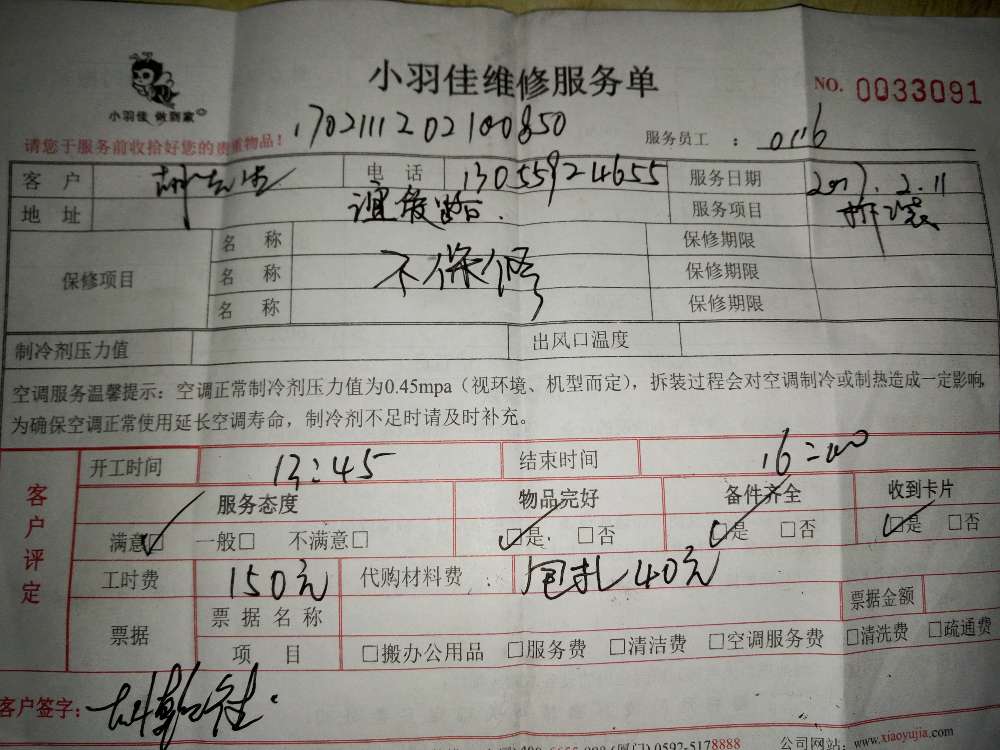 小羽佳维修服务单
NO. 0033091
小羽佳 做到家
请您于服务前收拾好您的贵重物品！
1702111202100850
服务员工 ： 0116
客 户 电 话 13055924655 服务日期 2017.2.11
地 址 服务项目 拆装
保修项目 名 称 不保修 保修期限
名 称 保修期限
名 称 保修期限
制冷剂压力值 出风口温度
空调服务温馨提示：空调正常制冷剂压力值为0.45mpa（视环境、机型而定），拆装过程会对空调制冷或制热造成一定影响，
为确保空调正常使用延长空调寿命，制冷剂不足时请及时补充。
客户评定
开工时间 13:45 结束时间 16:00
服务态度 物品完好 备件齐全 收到卡片
满意☑ 一般□ 不满意□ ☑是 □否 ☑是 □否 ☑是 □否
工时费 150元 代购材料费 ： 40元
票据 票 据 名 称 票据金额
项 目 □搬办公用品 □服务费 □清洁费 □空调服务费 □清洗费 □疏通费
客户签字：
0592-5178888 公司网站：www.xiaoyujia.com